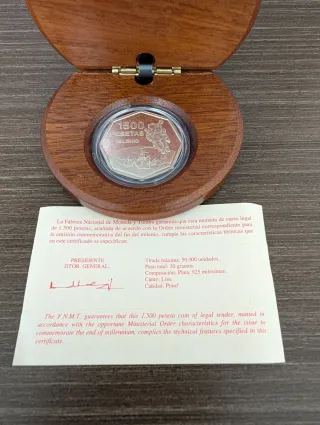 1500
PESETAS
MILENIO
La Fábrica Nacional de Moneda y Timbre garantiza que esta moneda de curso legal
de 1.500 pesetas, acuñada de acuerdo con la Orden ministerial correspondiente para
la emisión conmemorativa del fin del milenio, cumple las características técnicas que
en este certificado se especifican.
PRESIDENTE
DTOR. GENERAL
Tirada máxima: 50.000 unidades.
Peso total: 30 gramos
Composición: Plata 925 milésimas.
Canto: Liso
Calidad: Proof
The F.N.M.T. guarantees that this 1.500 peseta coin of legal tender, minted in
accordance with the opportune Ministerial Order characteristics for the issue to
commemorate the end of millennium, complies the technical features specified in this
certificate.